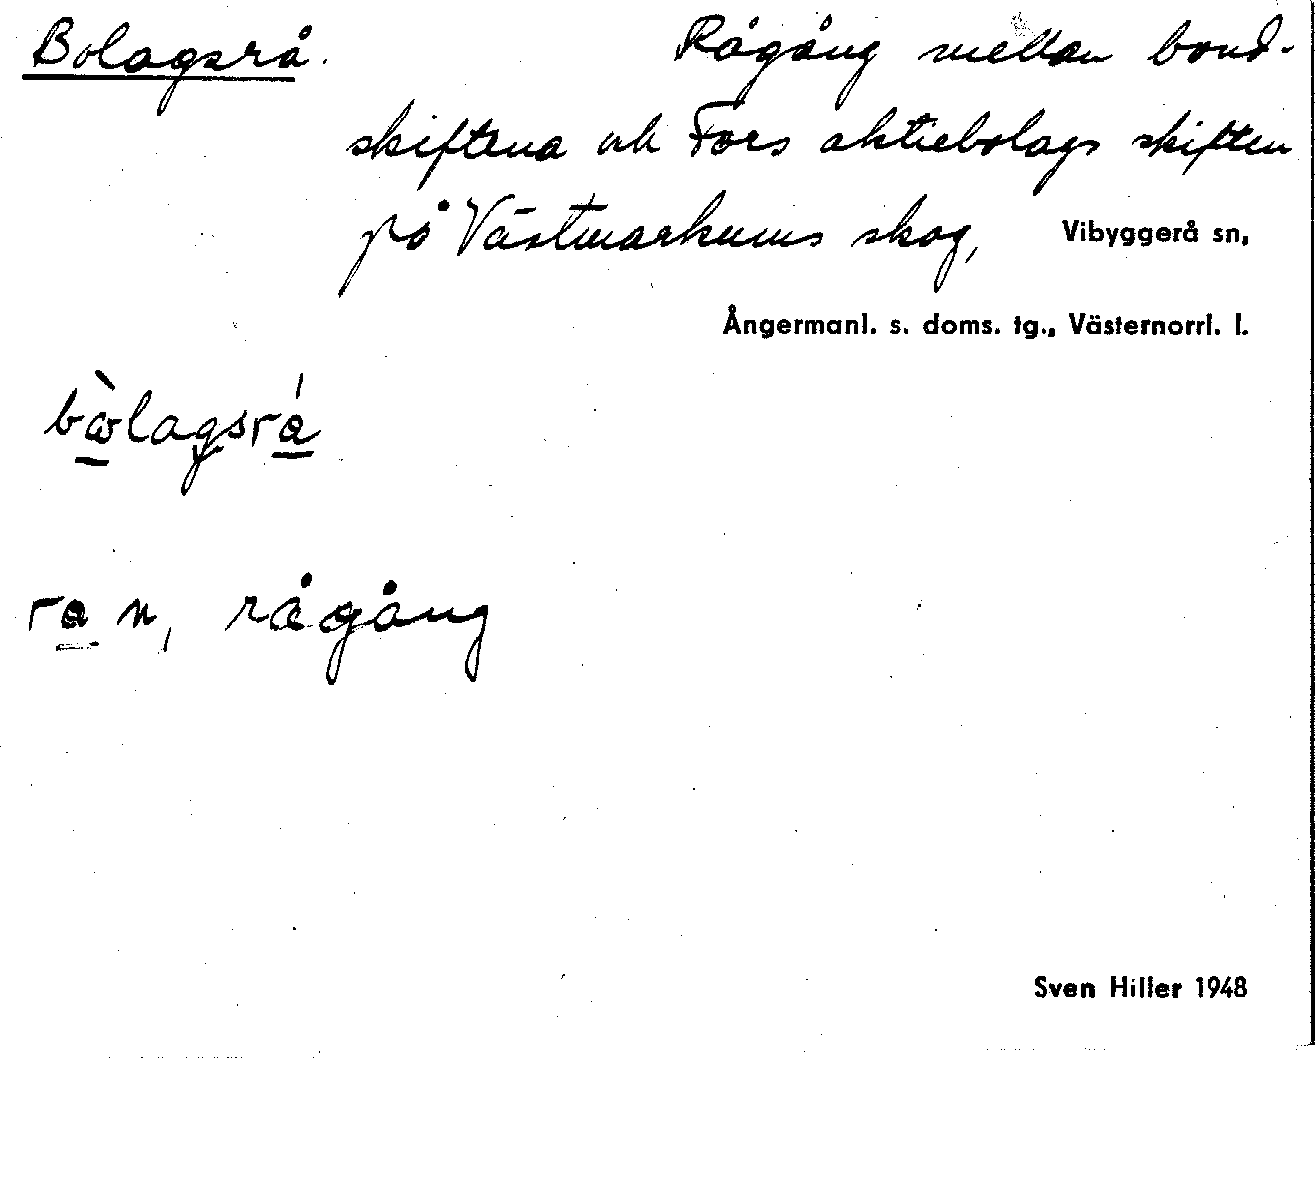 Bolagsrå. Rågång mellan bond-
skiftena och Fors aktiebolags skiften
på Västmarkums skog, Vibyggerå sn,
Ångermanl. s. doms. tg., Västernorrl. l.
rå n, rågång
Sven Hiller 1948